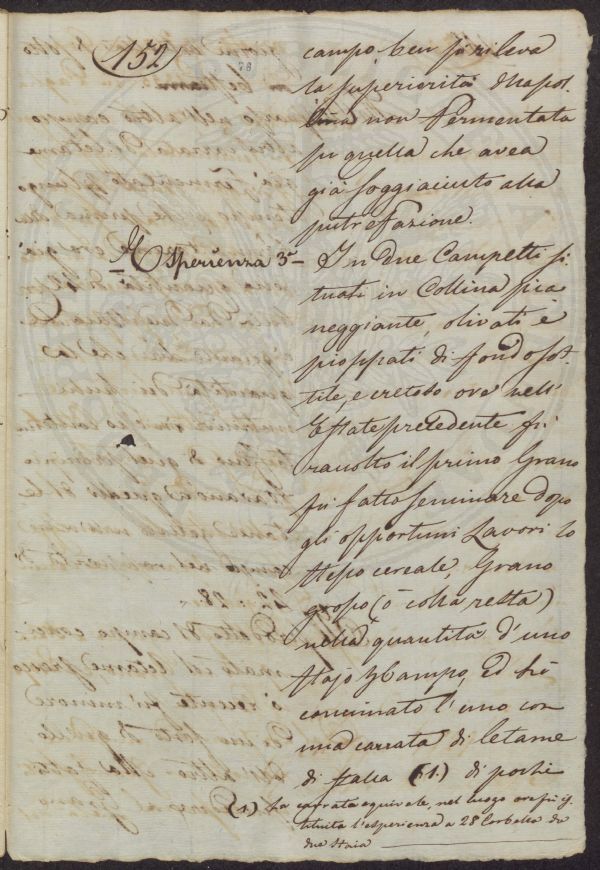 152
78
campo, ben si rileva
la superiorità
non Fermentata
su quella che avea
già soggiaciuto alla
putrefazione.
Esperienza 3ª
In due Campetti si-
tuati in Collina pia
neggiante, olivati e
pioppati di fondo sot-
tile, e cretoso ove nell'
Estate precedente fù
raccolto il primo Grano
fù fatto seminare dopo
gli opportuni Lavori lo
stesso cereale, Grano
grosso (ò colla resta)
nella quantità d'uno
stajo Campo, Ed hò
concimato l'uno con
una carrata di letame
di stalla (1.) di pochi
(1.) La carrata equivale, nel luogo ove fù is-
tituita l'esperienza a 28 Corbelli da
due Staia